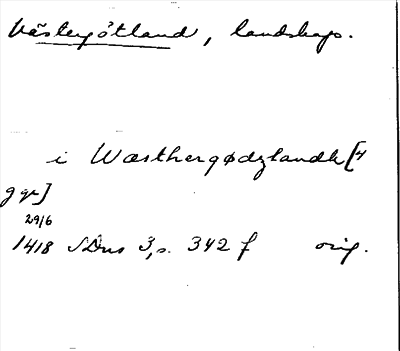 Västergötland, landskap.
i Wæsthergødzlandh [4
ggr]
29/6
1418 SDns 3, s. 342 f orig.